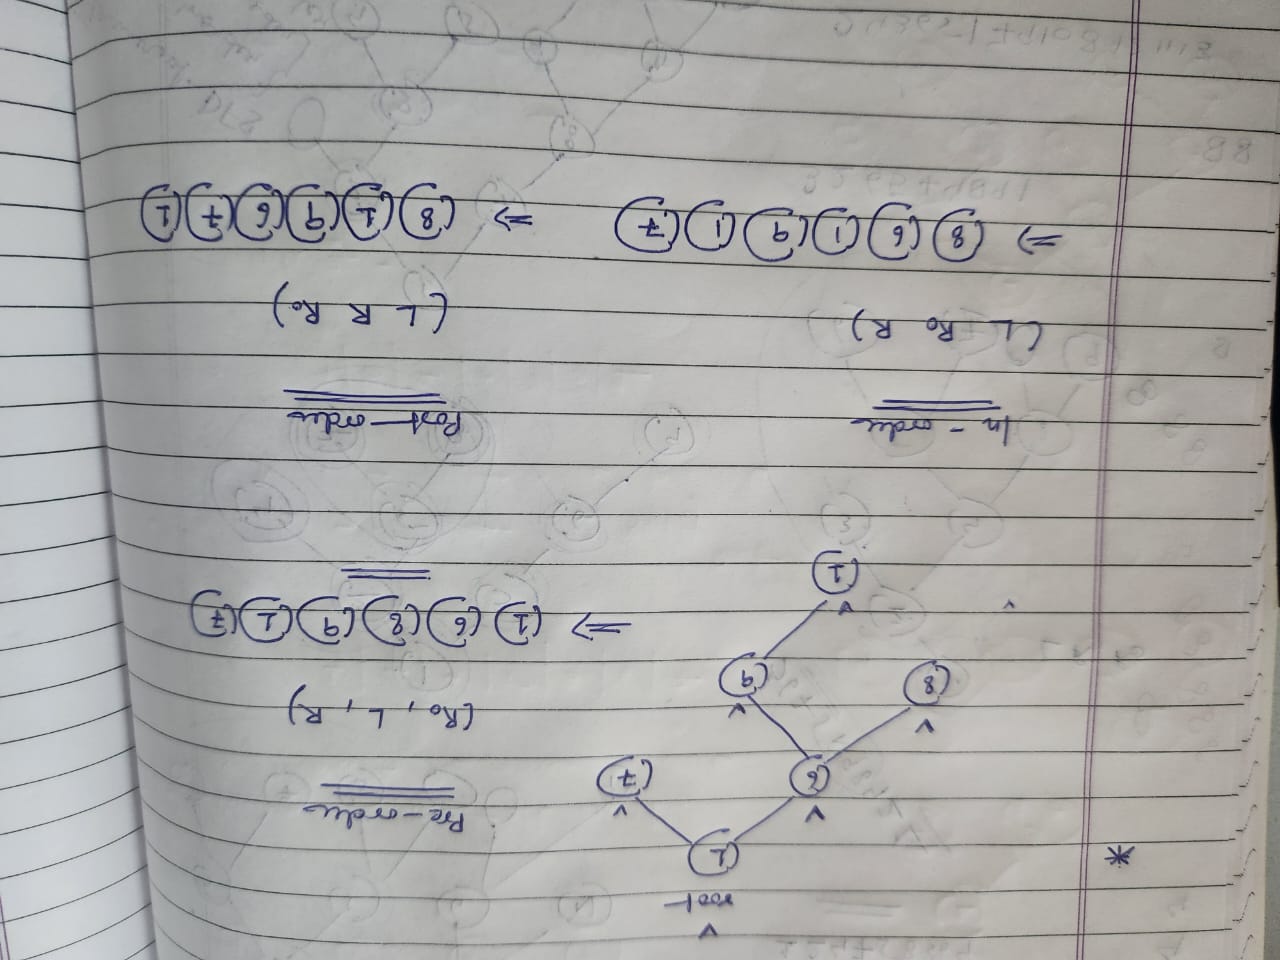 root
*
1
6 7
8 9
1
Pre-order
(Ro, L, R)
⇒ 1 6 8 9 1 7
In-order
(L Ro R)
⇒ 8 6 1 9 1 7
Post-order
(L R Ro)
⇒ 8 1 9 6 7 1